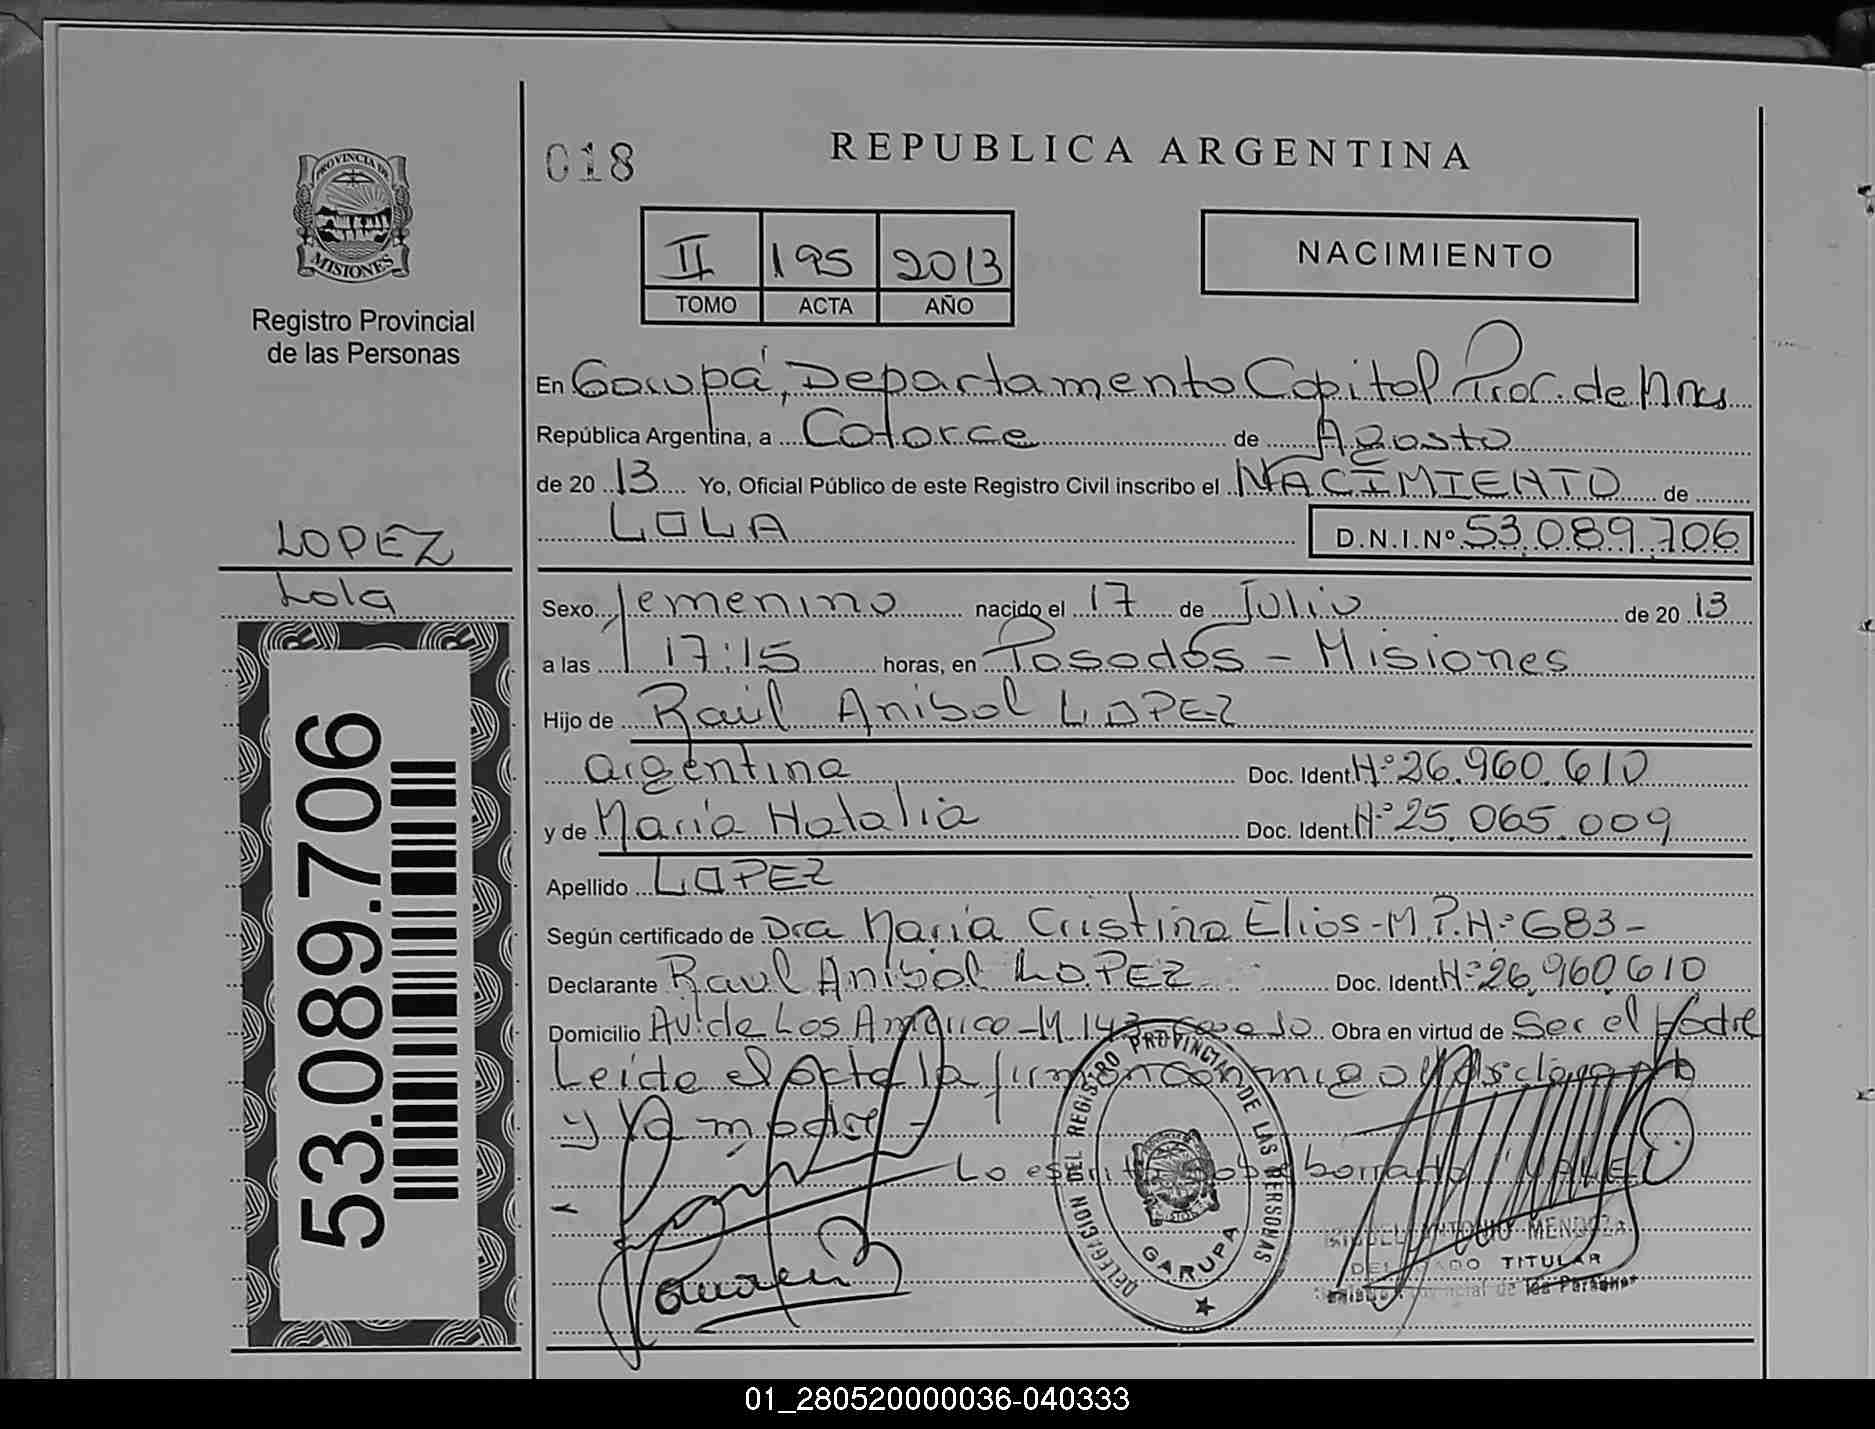 018
REPUBLICA ARGENTINA
PROVINCIA DE
MISIONES
Registro Provincial
de las Personas
II 195 2013
TOMO ACTA AÑO
NACIMIENTO
En Garupá, Departamento Capital Prov. de Mnes
República Argentina, a Catorce de Agosto
de 20 13 Yo, Oficial Público de este Registro Civil inscribo el NACIMIENTO de
LOLA D.N.I.Nº 53.089.706
LOPEZ
Lola
53.089.706
Sexo femenino nacido el 17 de Julio de 20 13
a las 17:15 horas, en Posadas - Misiones
Hijo de Raúl Anibal LOPEZ
argentina Doc. Ident. Nº 26.960.610
y de María Natalia Doc. Ident. Nº 25.065.009
Apellido LOPEZ
Según certificado de Dra María Cristina Elias - M.P. Nº 683 -
Declarante Raul Anibal LOPEZ Doc. Ident. Nº 26.960.610
Domicilio Av. de Los - M. 143 - casa 10 Obra en virtud de Ser el Padre
Leída el acta la firman conmigo el declarante
y la madre -
Lo escrito sobre borrado VALE
DELEGACION DEL REGISTRO PROVINCIAL DE LAS PERSONAS
GARUPA
MIGUEL ANTONIO MENDOZA
DELEGADO TITULAR
Registro Provincial de las Personas
01_280520000036-040333